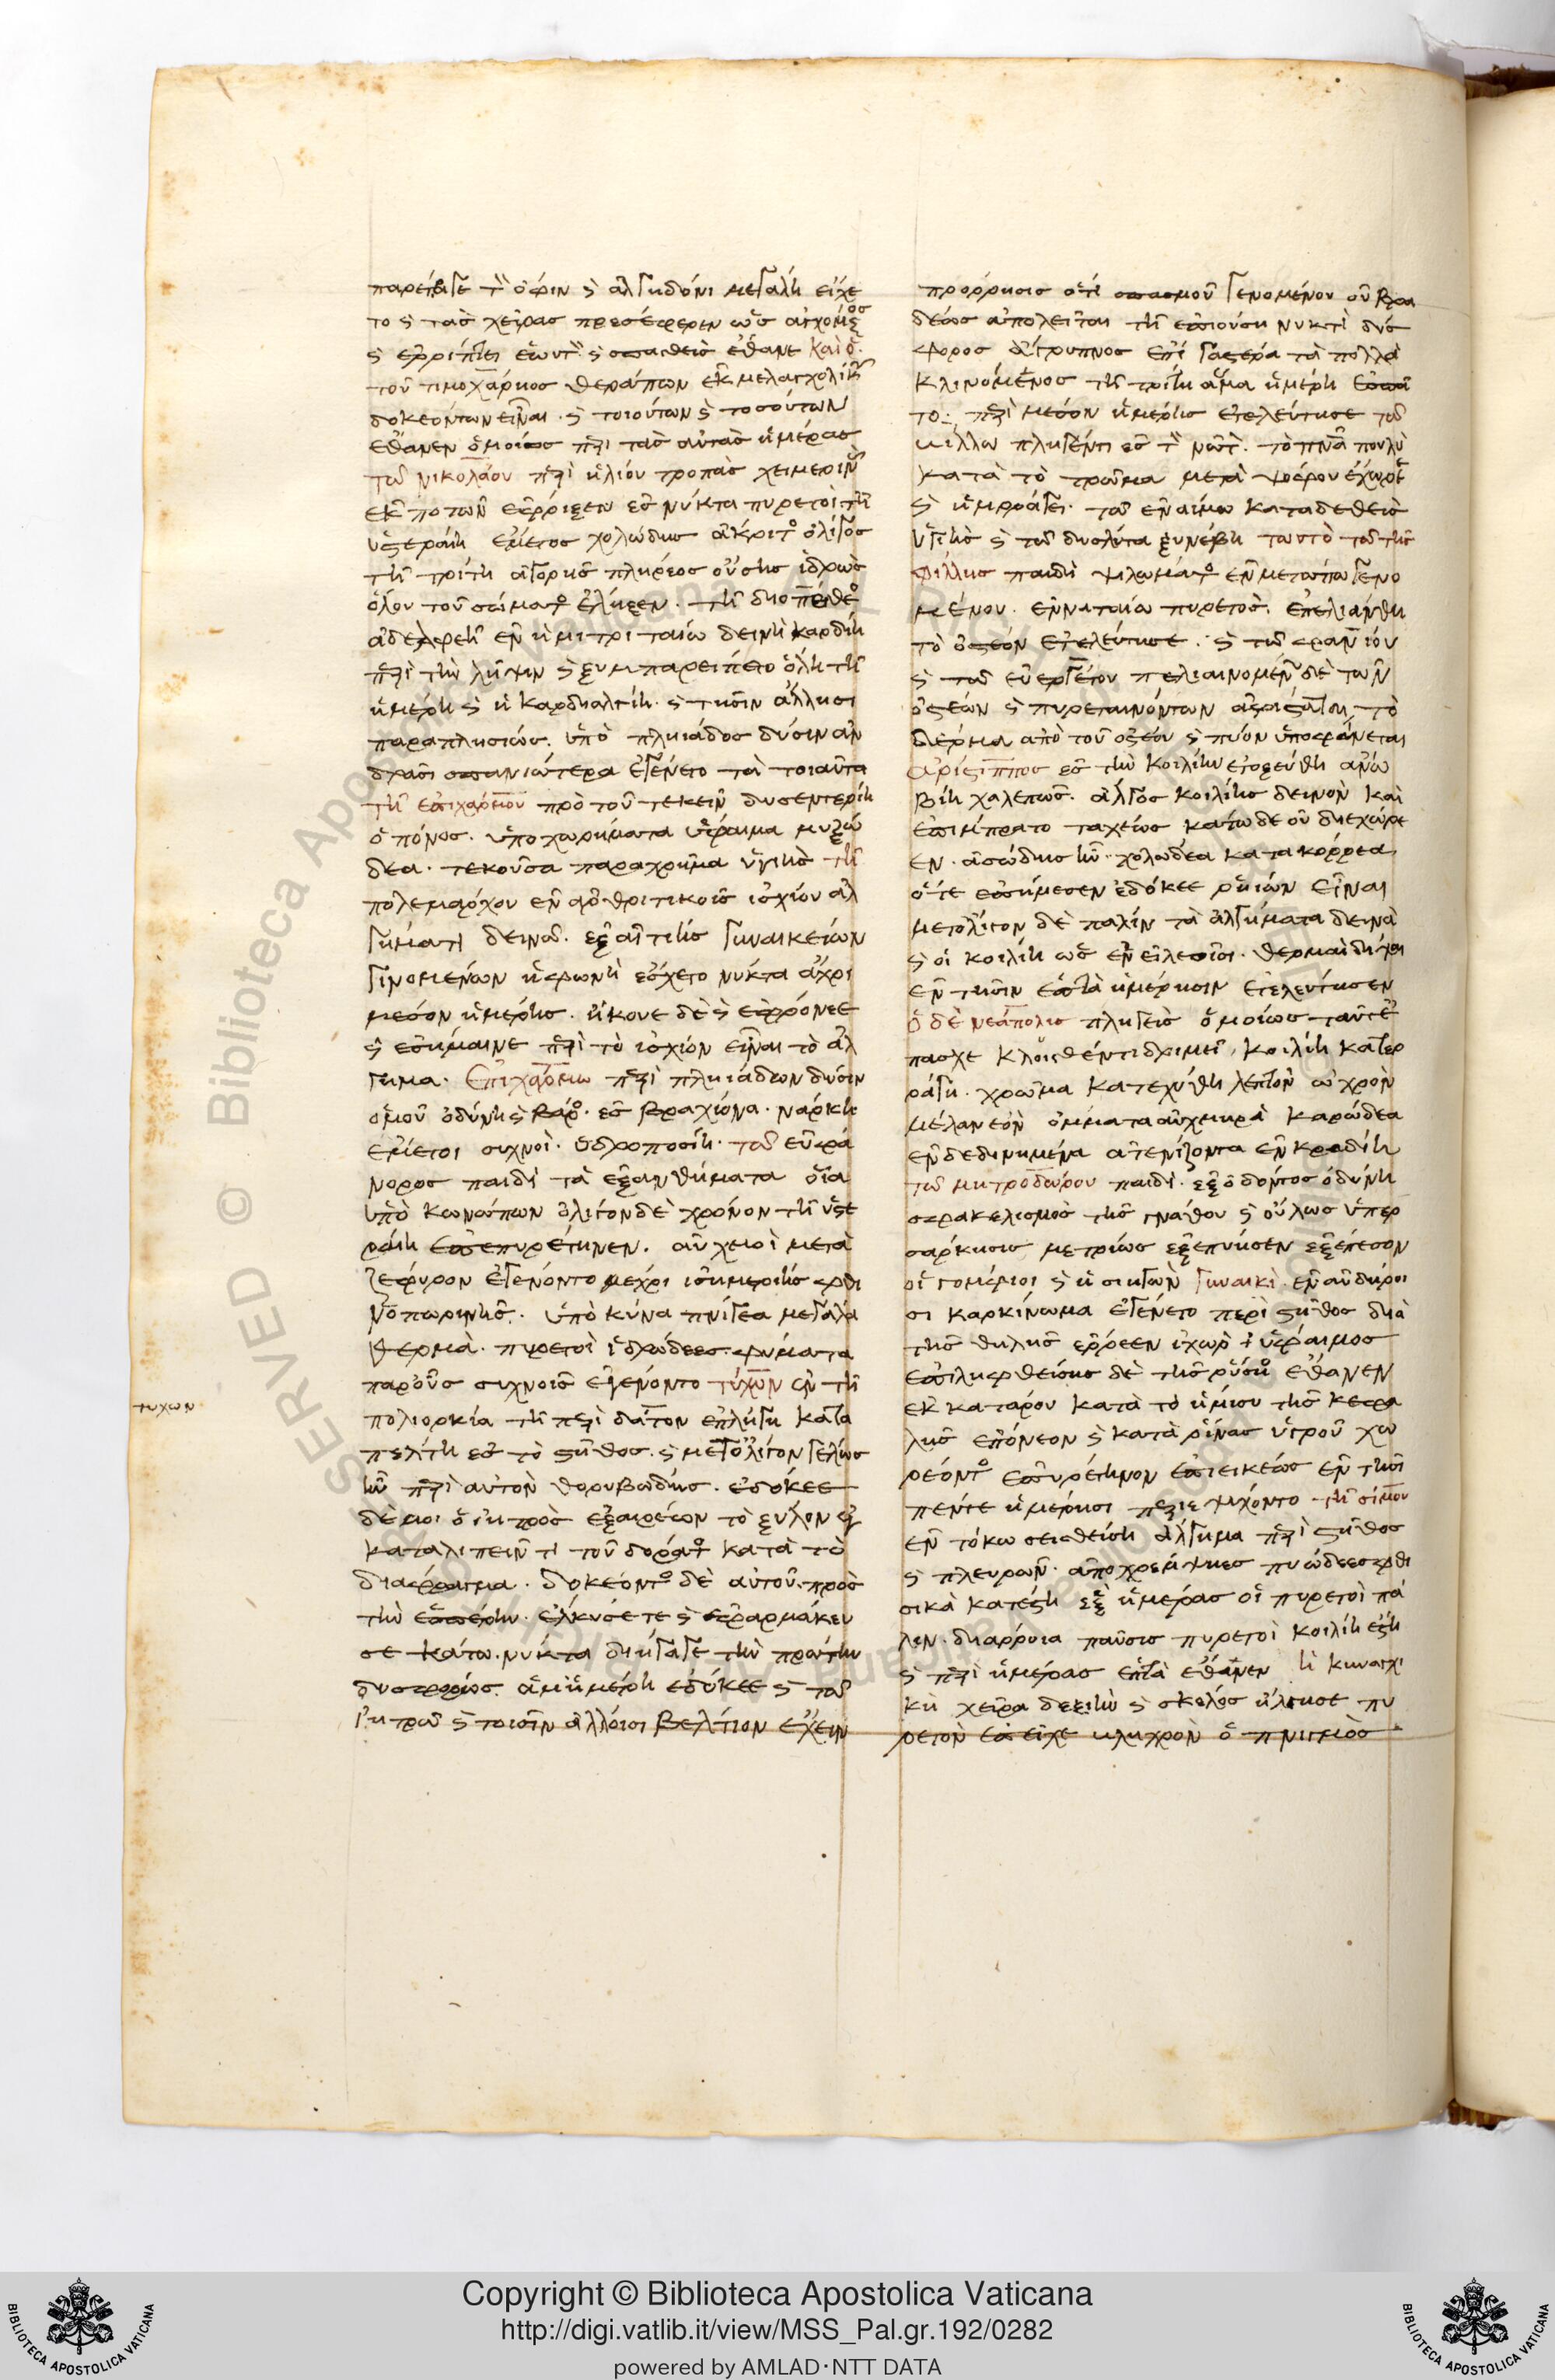 παρείωσε τὴν ὄψιν καὶ ἀλγηδόνι μεγάλη εἴχε
το καὶ τὰς χεῖρας προσέφερεν ὡς ἀγχόμενος
καὶ ἐρρίπτει ἑωυτὸν καὶ σπασθεὶς ἔθανε καὶ ὁ
τοῦ τιμοχάριος θεράπων ἐκ μελαγχολικῶν
δοκεόντων εἶναι. καὶ τοιούτων καὶ τοσούτων
ἔθανεν ὁμοίως περὶ τὰς αὐτὰς ἡμέρας
τῶ νικολάου περὶ ἡλίου τροπὰς χειμερινὰς
ἐκ ποτῶν ἔφριξεν ἐς νύκτα πυρετὸς τῆ
ὑστεραίη ἔμετος χολώδης ἄκρητος ὀλίγος
τῆ τρίτη ἀγορῆς πλήρεος οὔσης ἱδρὼς
ὅλου τοῦ σώματος ἔληξεν.
ἀδελφεῆ ἐν ἡμιτριταίω δεινὴ καρδίη
περὶ τὴν λῆψιν καὶ ξυμπαρείπετο ὅλη τῆ
ἡμέρη καὶ ἡ καρδιαλγίη. καὶ τῆσιν ἄλλησι
παραπλησίως. ὑπὸ πληιάδος δύσιν ἀν
δράσι σπανιώτερα ἐγένετο τὰ τοιαῦτα
τῆ ἐπιχάρμου πρὸ τοῦ τεκεῖν δυσεντερίη
ὁ πόνος. ὑποχωρήματα ὕφαιμα μυξώ
δεα. τεκοῦσα παραχρῆμα ὑγιὴς τῆ
πολεμάρχου ἐν ἀρθριτικοῖς ἰσχίου ἀλ
γήματι δεινῶ. ἐξ αἰτίης γυναικείων
γινομένων ἡ φωνὴ ἔσχετο νύκτα ἄχρι
μέσου ἡμέρης. ἤκουε δὲ καὶ ἐφρόνεε
καὶ ἐσήμαινε περὶ τὸ ἰσχίον εἶναι τὸ ἄλ
γημα. Ἐπιχάρμω περὶ πληιάδων δύσιν
ὤμου ὀδύνη καὶ βάρος ἐς βραχίονα. νάρκη
ἔμετοι συχνοὶ. ὑδροποσίη. τῶ εὐφρά
νορος παιδὶ τὰ ἐξανθήματα οἷα
ὑπὸ κωνώπων ὀλίγον δὲ χρόνον τῆ ὑστε
ραίη ἐπεπυρέτηνεν. αὐχμοὶ μετὰ
ζέφυρον ἐγένοντο μέχρι ἰσημερίης φθι
νοπωρινῆς. ὑπὸ κύνα πνίγεα μεγάλα
θερμὰ. πυρετοὶ ἱδρώδεες. φύματα
παρ' οὖς συχνοῖς ἐγένοντο τύχων ἐν τῆ
τυχων
πολιορκία τῆ περὶ δάτον ἐπλήγη κατα
πέλτη ἐς τὸ στῆθος. καὶ μετ' ὀλίγον γέλως
ἦν περὶ αὐτὸν θορυβώδης. ἐδόκεε
δέ μοι ὁ ἰητρὸς ἐξαιρέων τὸ ξύλον
καταλιπεῖν τι τοῦ δόρατος κατὰ τὸ
διάφραγμα. δοκέοντος δὲ αὐτοῦ. πρὸς
τὴν ἑσπέρην. ἔκλυσέ τε καὶ ἐφαρμάκευ
σε κάτω. νύκτα διήγαγε τὴν πρώτην
δυσφόρως. ἅμ' ἡμέρη ἐδόκεε καὶ τῶ
ἰητρῶ καὶ τοῖσιν ἄλλοισι βέλτιον ἔχειν
πρόρρησις ὅτι σπασμοῦ γενομένου οὐ βρα
δέως ἀπολεῖται τῆ ἐπιούση νυκτὶ δύσ
φορος ἄγρυπνος ἐπὶ γαστέρα τὰ πολλὰ
κλινόμενος τῆ τρίτη ἅμα ἡμέρη ἐσπᾶ
το περὶ μέσον ἡμέρης ἐτελεύτησε τῶ
κίλλω πληγέντι ἐς τὸν νῶτον. τὸ πνεῦμα πουλὺ
κατὰ τὸ τρῶμα μετὰ ψόφου ἐχώρεε
καὶ ἡμορράγει. τῶ ἐναίμω καταδεθεὶς
ὑγιὴς καὶ τῶ δυσλύτα ξυνέβη τωυτὸ τῶ τῆς
φίλλης παιδὶ ψιλώματος ἐν μετώπω γενο
μένου. ἐνναταίω πυρετὸς. ἐπελιάνθη
τὸ ὀστέον ἐτελεύτησε. καὶ τῶ φανίου
καὶ τῶ εὐεργέτου πελιαινομένων δὲ τῶν
ὀστέων καὶ πυρεταινόντων ἀφίσταται τὸ
δέρμα ἀπὸ τοῦ ὀστέου καὶ πῦον ὑποφαίνεται
ἀρίστιππος ἐς τὴν κοιλίην ἐτοξεύθη ἄνω
βίη χαλεπῶς. ἄλγος κοιλίης δεινὸν καὶ
ἐπίμπρατο ταχέως κάτω δε οὐ διεχώρε
εν. ἀσώδης ἦν. χολώδεα κατακορέα
ὅτε ἀπήμεσεν ἐδόκεε ρηίων εἶναι
μετ' ὀλίγον δὲ πάλιν τὰ ἀλγήματα δεινὰ
καὶ οἱ κοιλίη ὡς ἐν εἰλεοῖσι. θέρμαι δίψαι
ἐν τῆσιν ἑπτὰ ἡμέρησιν ἐτελεύτησεν
ὁ δὲ νεάπολις πληγεὶς ὁμοίως ταῦτα ἔ
πασχε κλυσθέντι δριμεῖ, κοιλίη κατερ
ράγη. χρῶμα κατεχύθη λεπτὸν ὠχρὸν
μέλαν ἐὸν ὄμματα αὐχμηρὰ καρώδεα
ἐνδεδινημένα ἀτενίζοντα ἐν κραδίη
τῶ μητροδώρου παιδὶ. ἐξ ὀδόντος ὀδύνη
σφακελισμὸς τῆς γνάθου καὶ οὔλων ὑπερ
σάρκησις μετρίως ἐξεπύησεν ἐξέπεσον
οἱ γομφίοι καὶ ἡ σιηγὼν γυναικὶ ἐν αὐδήροι
σι καρκίνωμα ἐγένετο περὶ στῆθος διὰ
τῆς θηλῆς ἔρρεεν ἰχὼρ ὕφαιμος
ἐπιληφθείσης δὲ τῆς ρύσιος ἔθανεν
ἐκ κατάρου κατὰ τὸ ἥμισυ τῆς κεφα
λῆς ἐπόνεον καὶ κατὰ ρῖνας ὑγροῦ χω
ρέοντος ἐπυρέτηνον ἐπιεικέως ἐν τῆσι
πέντε ἡμέρησι περιεψύχοντο τῆ σίμου
ἐν τόκω σεισθείση ἄλγημα περὶ στῆθος
καὶ πλευρὸν. ἀποχρέμψιες πυώδεες φθι
σικὰ κατέστη ἓξ ἡμέρας οἱ πυρετοὶ πά
λιν. διάρροια παῦσις πυρετοὶ κοιλίη ἔστη
καὶ περὶ ἡμέρας ἑπτὰ ἔθανεν ἡ κυναγχι
κὴ χεῖρα δεξιὴν καὶ σκέλος ἤλγησε πυ
ρετὸν ἐπεῖχε βληχρὸν ὁ πνιγμὸς
Copyright © Biblioteca Apostolica Vaticana
http://digi.vatlib.it/view/MSS_Pal.gr.192/0282
powered by AMLAD·NTT DATA